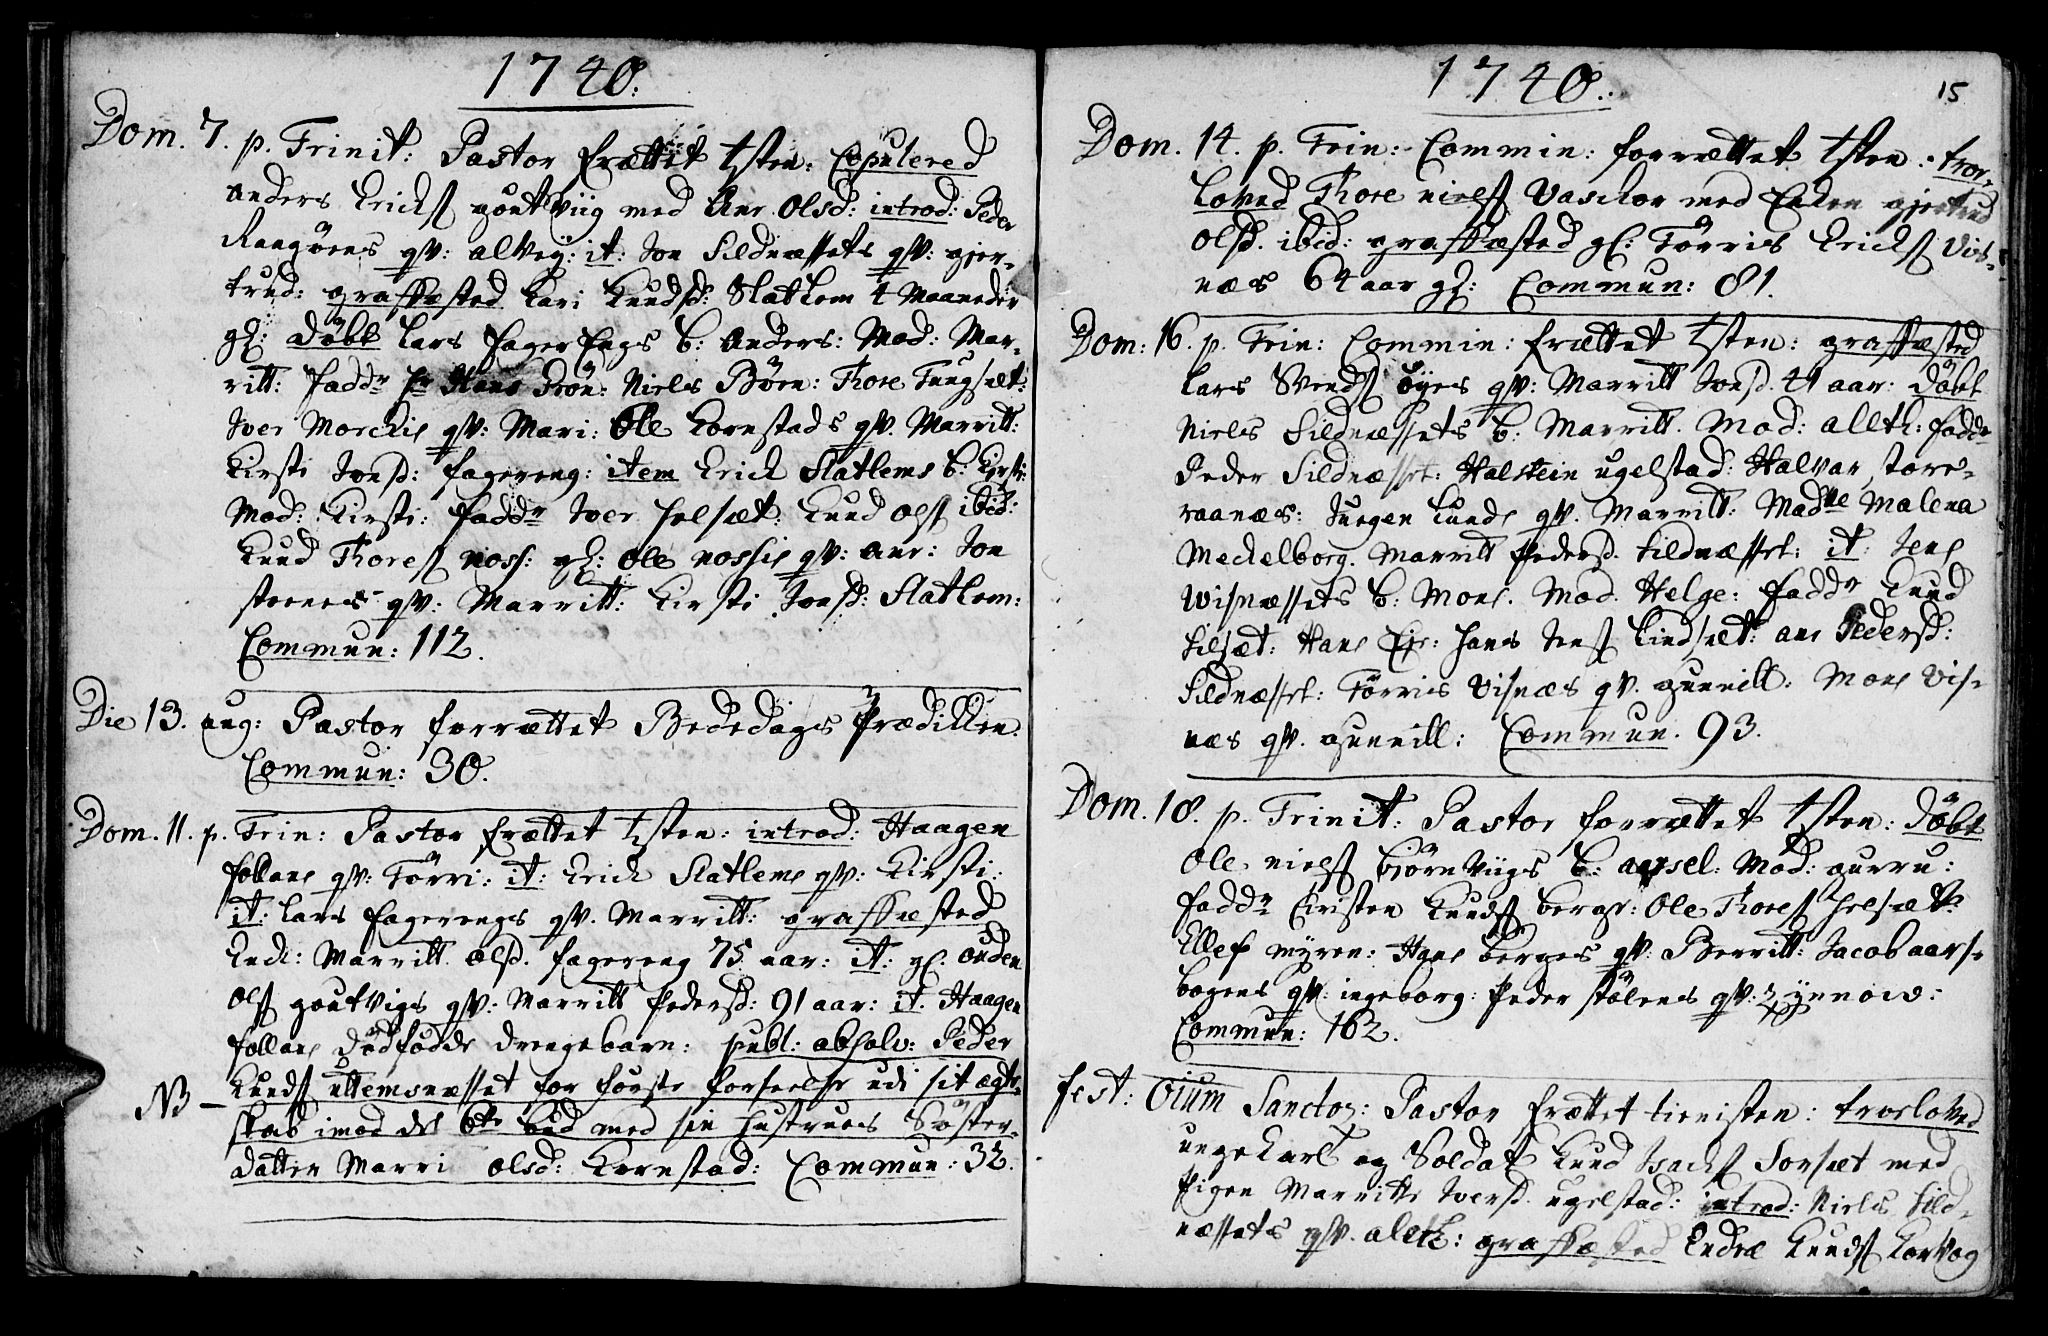 1740.
Dom. 7. p. Trinit: Pastor forættet tisten: Copulered
Anders Erichs gontviig med Anr. Olsd: introd: Peder
Ramsøens qv: alvej: it: Jon Sildnæssets qv: gjer-
trud: graffæsted Kari Knudsd: Slatlem 4 Maaneder
gl: döbt Lars Fager Engs b: Anders: Mod: Mar-
ritt: Faddr hr Hans Brön: Niels Börn: Thore Tungsæt:
Iver Morchis qv: Mari: Ole Kornstads qv. Marritt:
Kirsti Jonsd: Fagereng: item Erich Slatlems b: Kirsti:
Mod: Kirsti: Faddr Iver Helsæt: Knud Ols ibid:
Knud Thores noss: gl: Ole nossis qv: Anr: Jon
steenes qv: Marritt: Kirsti Jonsd: Slatlem:
Commun: 112.
Die 13. Aug: Pastor forrættet Bededags Prædikken.
Commun: 30.
Dom. 11. p. Trin: Pastor frættet tisten: introd: Haagen
follans qv: Törri: it: Erich Slatlems qv: Kirsti:
it: Lars Fagerengs qv. Marritt: graffæsted
Enk: Marritt Olsd. Fagereng 75 aar: it: gl. Auden
Ols goutvigs qv: Marritt Pedersd: 91 aar: it: Haagen
follans dödfödde drengebarn: publ: absolv: Peder
NB – Knuds Uttemsnæsset for første forseelse udi sit ægte-
skab imod det 6te bud med sin Hustrues Söster-
datter Marri Olsd: Kornstad: Commun: 32.
1740. 15
Dom. 14. p. Trin: Commin: forrættet tisten: troe-
loved Thore niels Vaschor med Enken gjertrud
Olsd. ibid: graffæsted gl: Törris Erichs Vis-
næs 64 aar gl: Commun: 81.
Dom: 16. p. Trin: Commin: frættet tisten: graffæsted
Lars Svends öyes qv: Marritt Jonsd. 41 aar: döbt
Niels Sildnæssets b: Marritt. Mod: allth: Faddr
Peder Sildnæsset: Halstein ugelstad: Halvar store-
raanæs: Jurgen Lunds qv. Marritt: Madme Malena
Mechelborg. Marritt Pedersd. Sildnæsset: it: Jens
Wisnæssets b: Mons. Mod. Helge: Faddr Knud
Hans Jens Lindsæt: Ane Pedersd:
Sildnæsset: Törris Visnæs qv. gunnill: Mons Vis-
næs qv. gunnill: Commun. 93.
Dom. 18. p. Trinit: Pastor forrættet tisten: döbt
Ole niels björnviigs b: Mod: gurru:
Faddr Christen Knuds berge: Ole Thores Helsæt:
Ellef myren: Hans berges qv: Berritt: Jacob aars-
bogens qv: ingeborg: Peder stölens qv: Synnow:
Commun: 162.
fest: Oium Sanctor: Pastor frættet tienisten: troeloved
unge Karl og Soldat Knud Isachs Sorsæt med
Pigen Marritte Iversd. ugelstad: introd: Niels Sild-
næssets qv. aleth: graffæsted Endræ Knuds Korvog